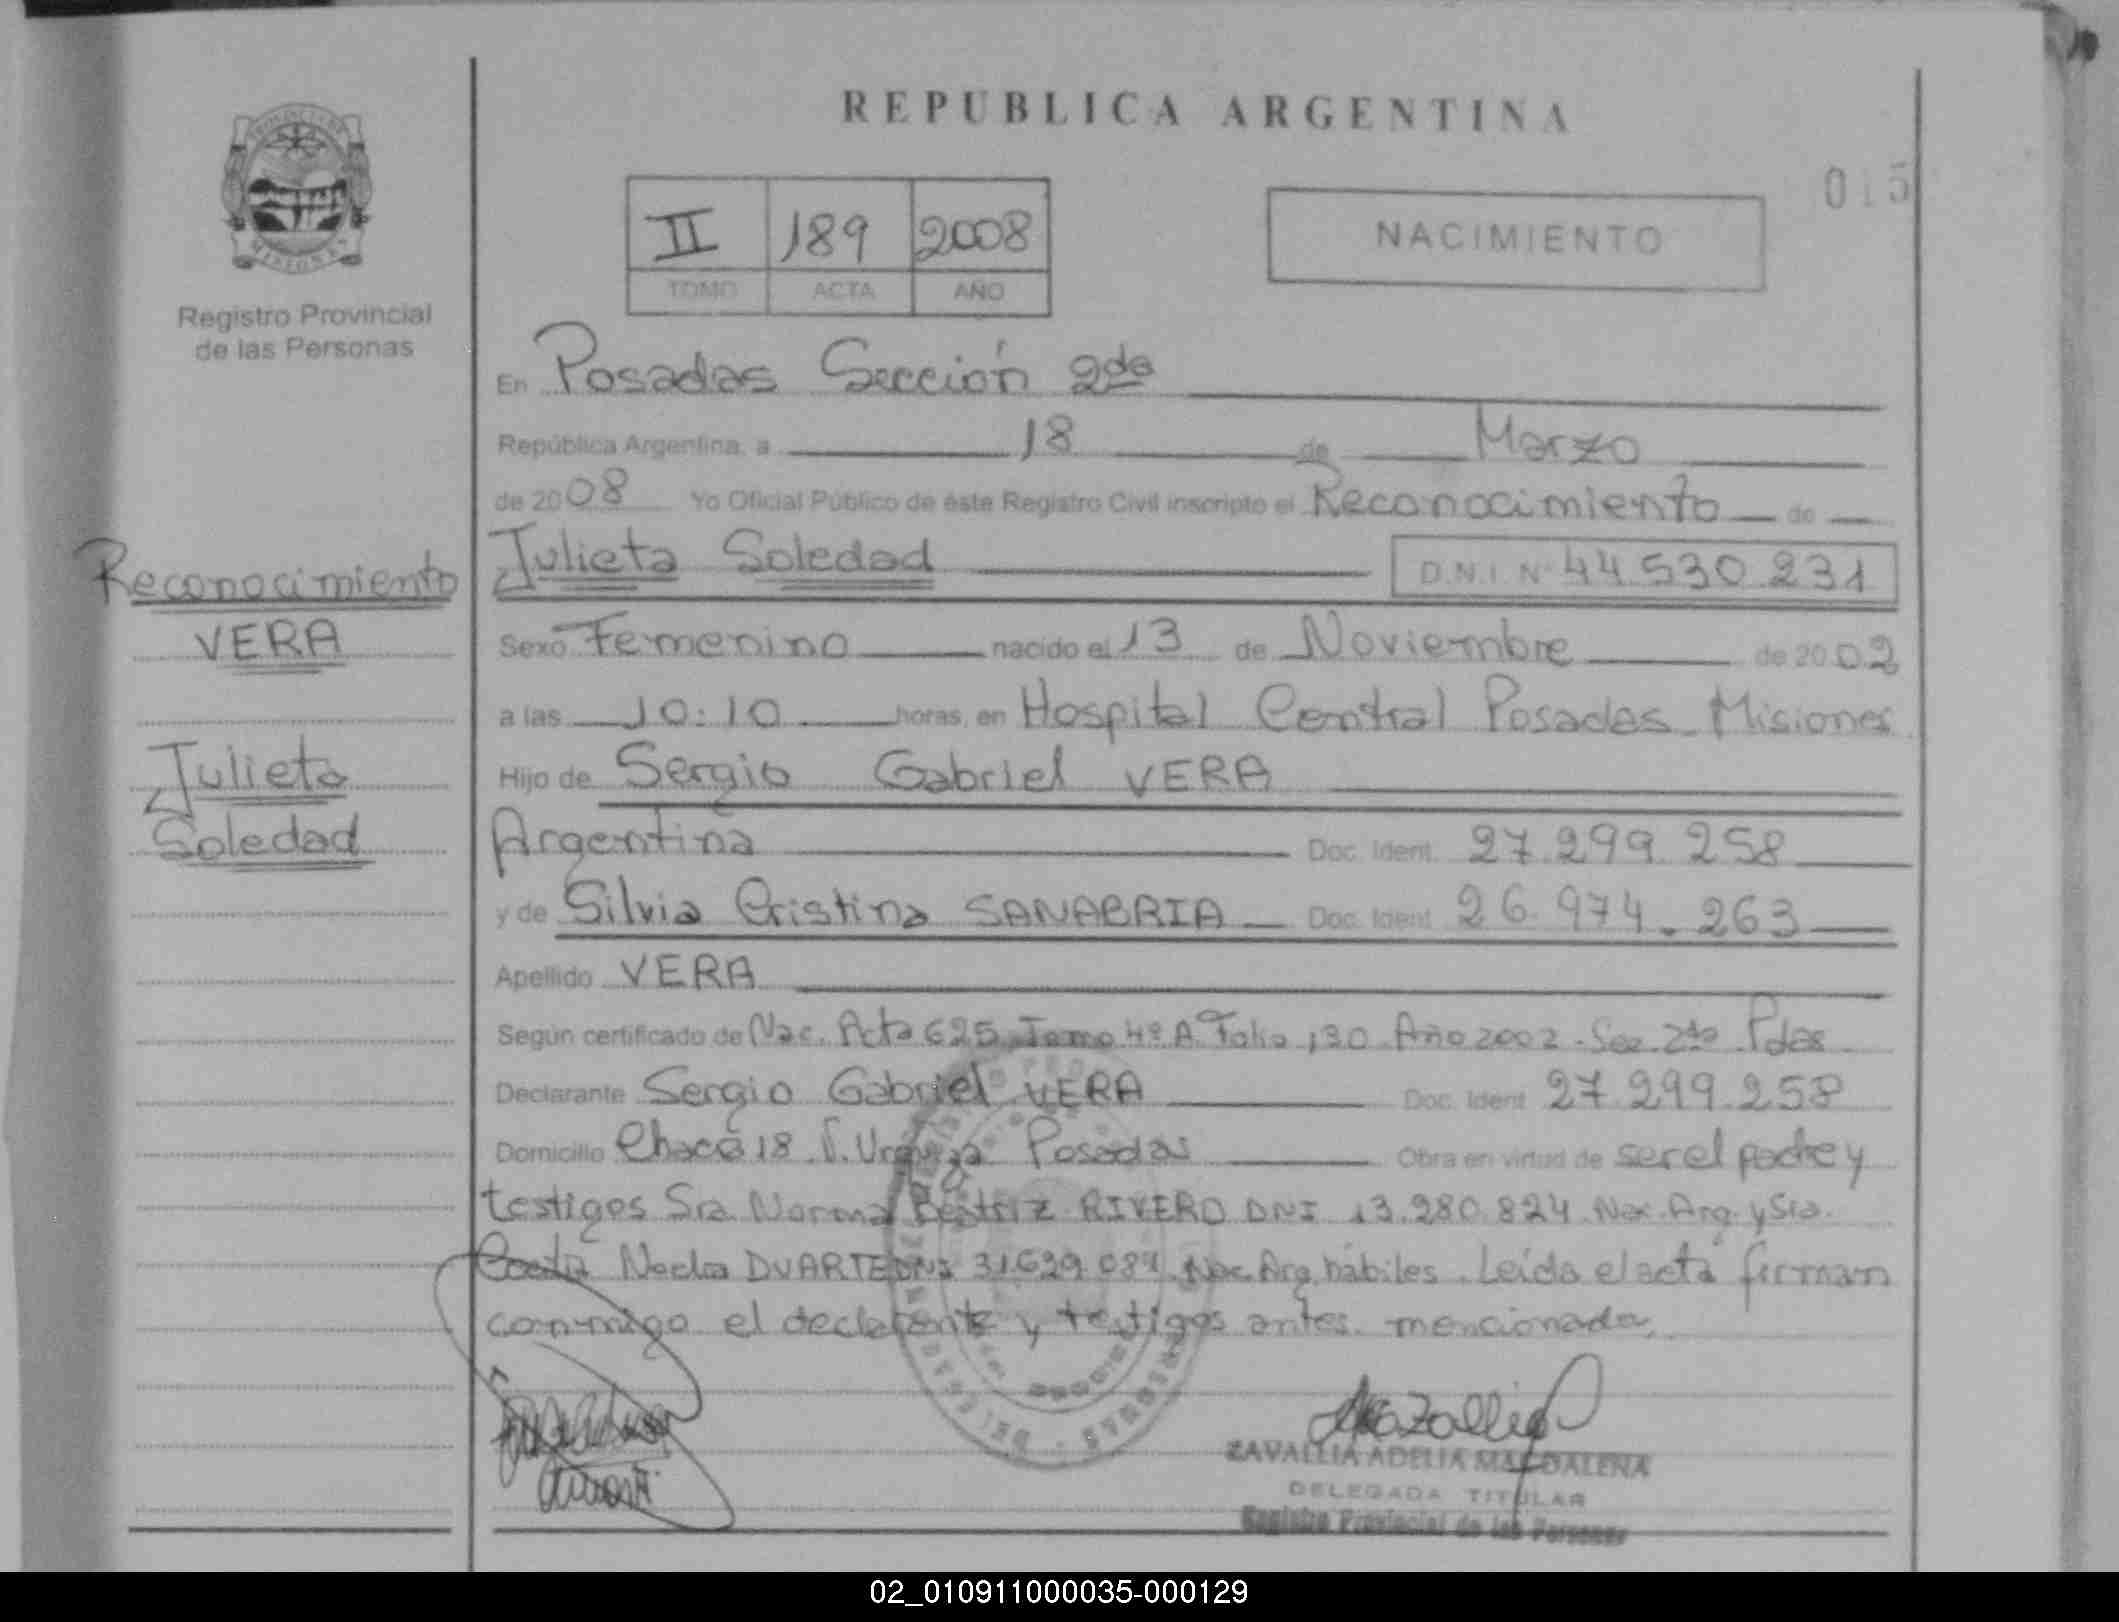 REPUBLICA ARGENTINA
015
II 189 2008
TOMO ACTA AÑO
NACIMIENTO
MISIONES
Registro Provincial
de las Personas
Reconocimiento
VERA
Julieta
Soledad
En Posadas Sección 2da
República Argentina, a 18 de Marzo
de 2008 Yo Oficial Público de éste Registro Civil inscripto el Reconocimiento de
Julieta Soledad D.N.I. Nº 44.530.231
Sexo Femenino nacido el 13 de Noviembre de 2002
a las 10:10 horas, en Hospital Central Posadas Misiones
Hijo de Sergio Gabriel VERA
Argentina Doc. Ident. 27.299.258
y de Silvia Cristina SANABRIA Doc. Ident. 26.974.263
Apellido VERA
Según certificado de Nac. Acta 625 Tomo 4º A Folio 130 Año 2002 - Sec 2da Pdas
Declarante Sergio Gabriel VERA Doc. Ident. 27.299.258
Domicilio Chaca 18 V. Urquiza Posadas Obra en virtud de ser el padre y
testigos Sra. Norma Beatriz RIVERO DNI 13.280.824 Nac. Arg. y Sra.
DUARTE DNI 31.629.084 Nac. Arg. hábiles. Leída el acta firman
conmigo el declarante y testigos antes mencionados.
ZAVALLIA ADELIA MAGDALENA
DELEGADA TITULAR
Registro Provincial de las Personas
02_010911000035-000129